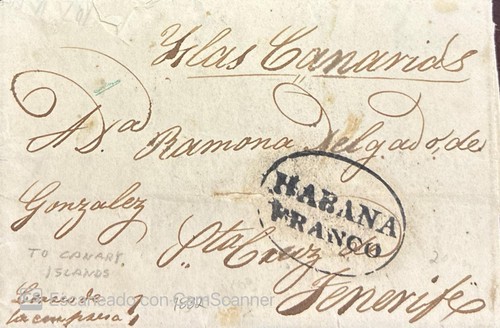 Islas Canarias
A Da Ramona Delgado, de
Gonzalez
HABANA
FRANCO
Sta Cruz de
TO CANARY
ISLANDS
Tenerife
Correo de
la empresa
1832
2
Escaneado con CamScanner